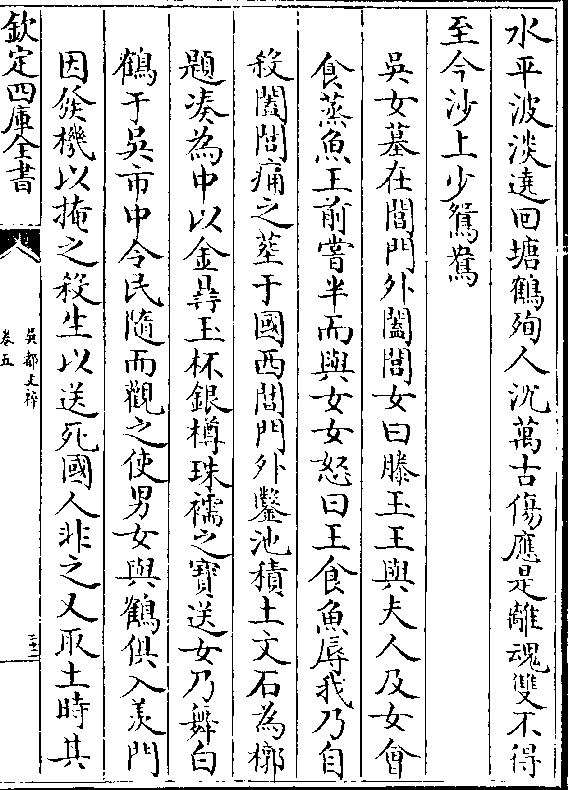 水平波淡遶回塘鶴殉人沉萬古傷應是離魂雙不得
至今沙上少鴛鴦
吳女墓在閶門外闔閭女曰滕玉王與夫人及女會
食蒸魚王前嘗半而與女女怒曰王食魚辱我乃自
殺闔閭痛之塟于國西閶門外鑿池積土文石為槨
題凑為中以金鼎玉杯銀樽珠襦之寶送女乃舞白
鶴于吳市中令民隨而觀之使男女與鶴俱入羨門
因發機以掩之殺生以送死國人非之又取土時其
欽定四庫全書
吳都文粹
卷五
三十二